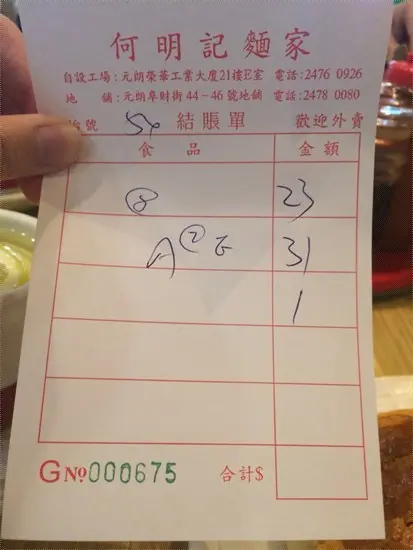 何明記麵家
自設工場:元朗榮華工業大廈21樓E室 電話:2476 0926
地 舖:元朗阜財街44-46號地舖 電話:2478 0080
台號 54 結賬單 歡迎外賣
食品 金額
⑧ 23
A② E 31
1
GNo000675 合計$